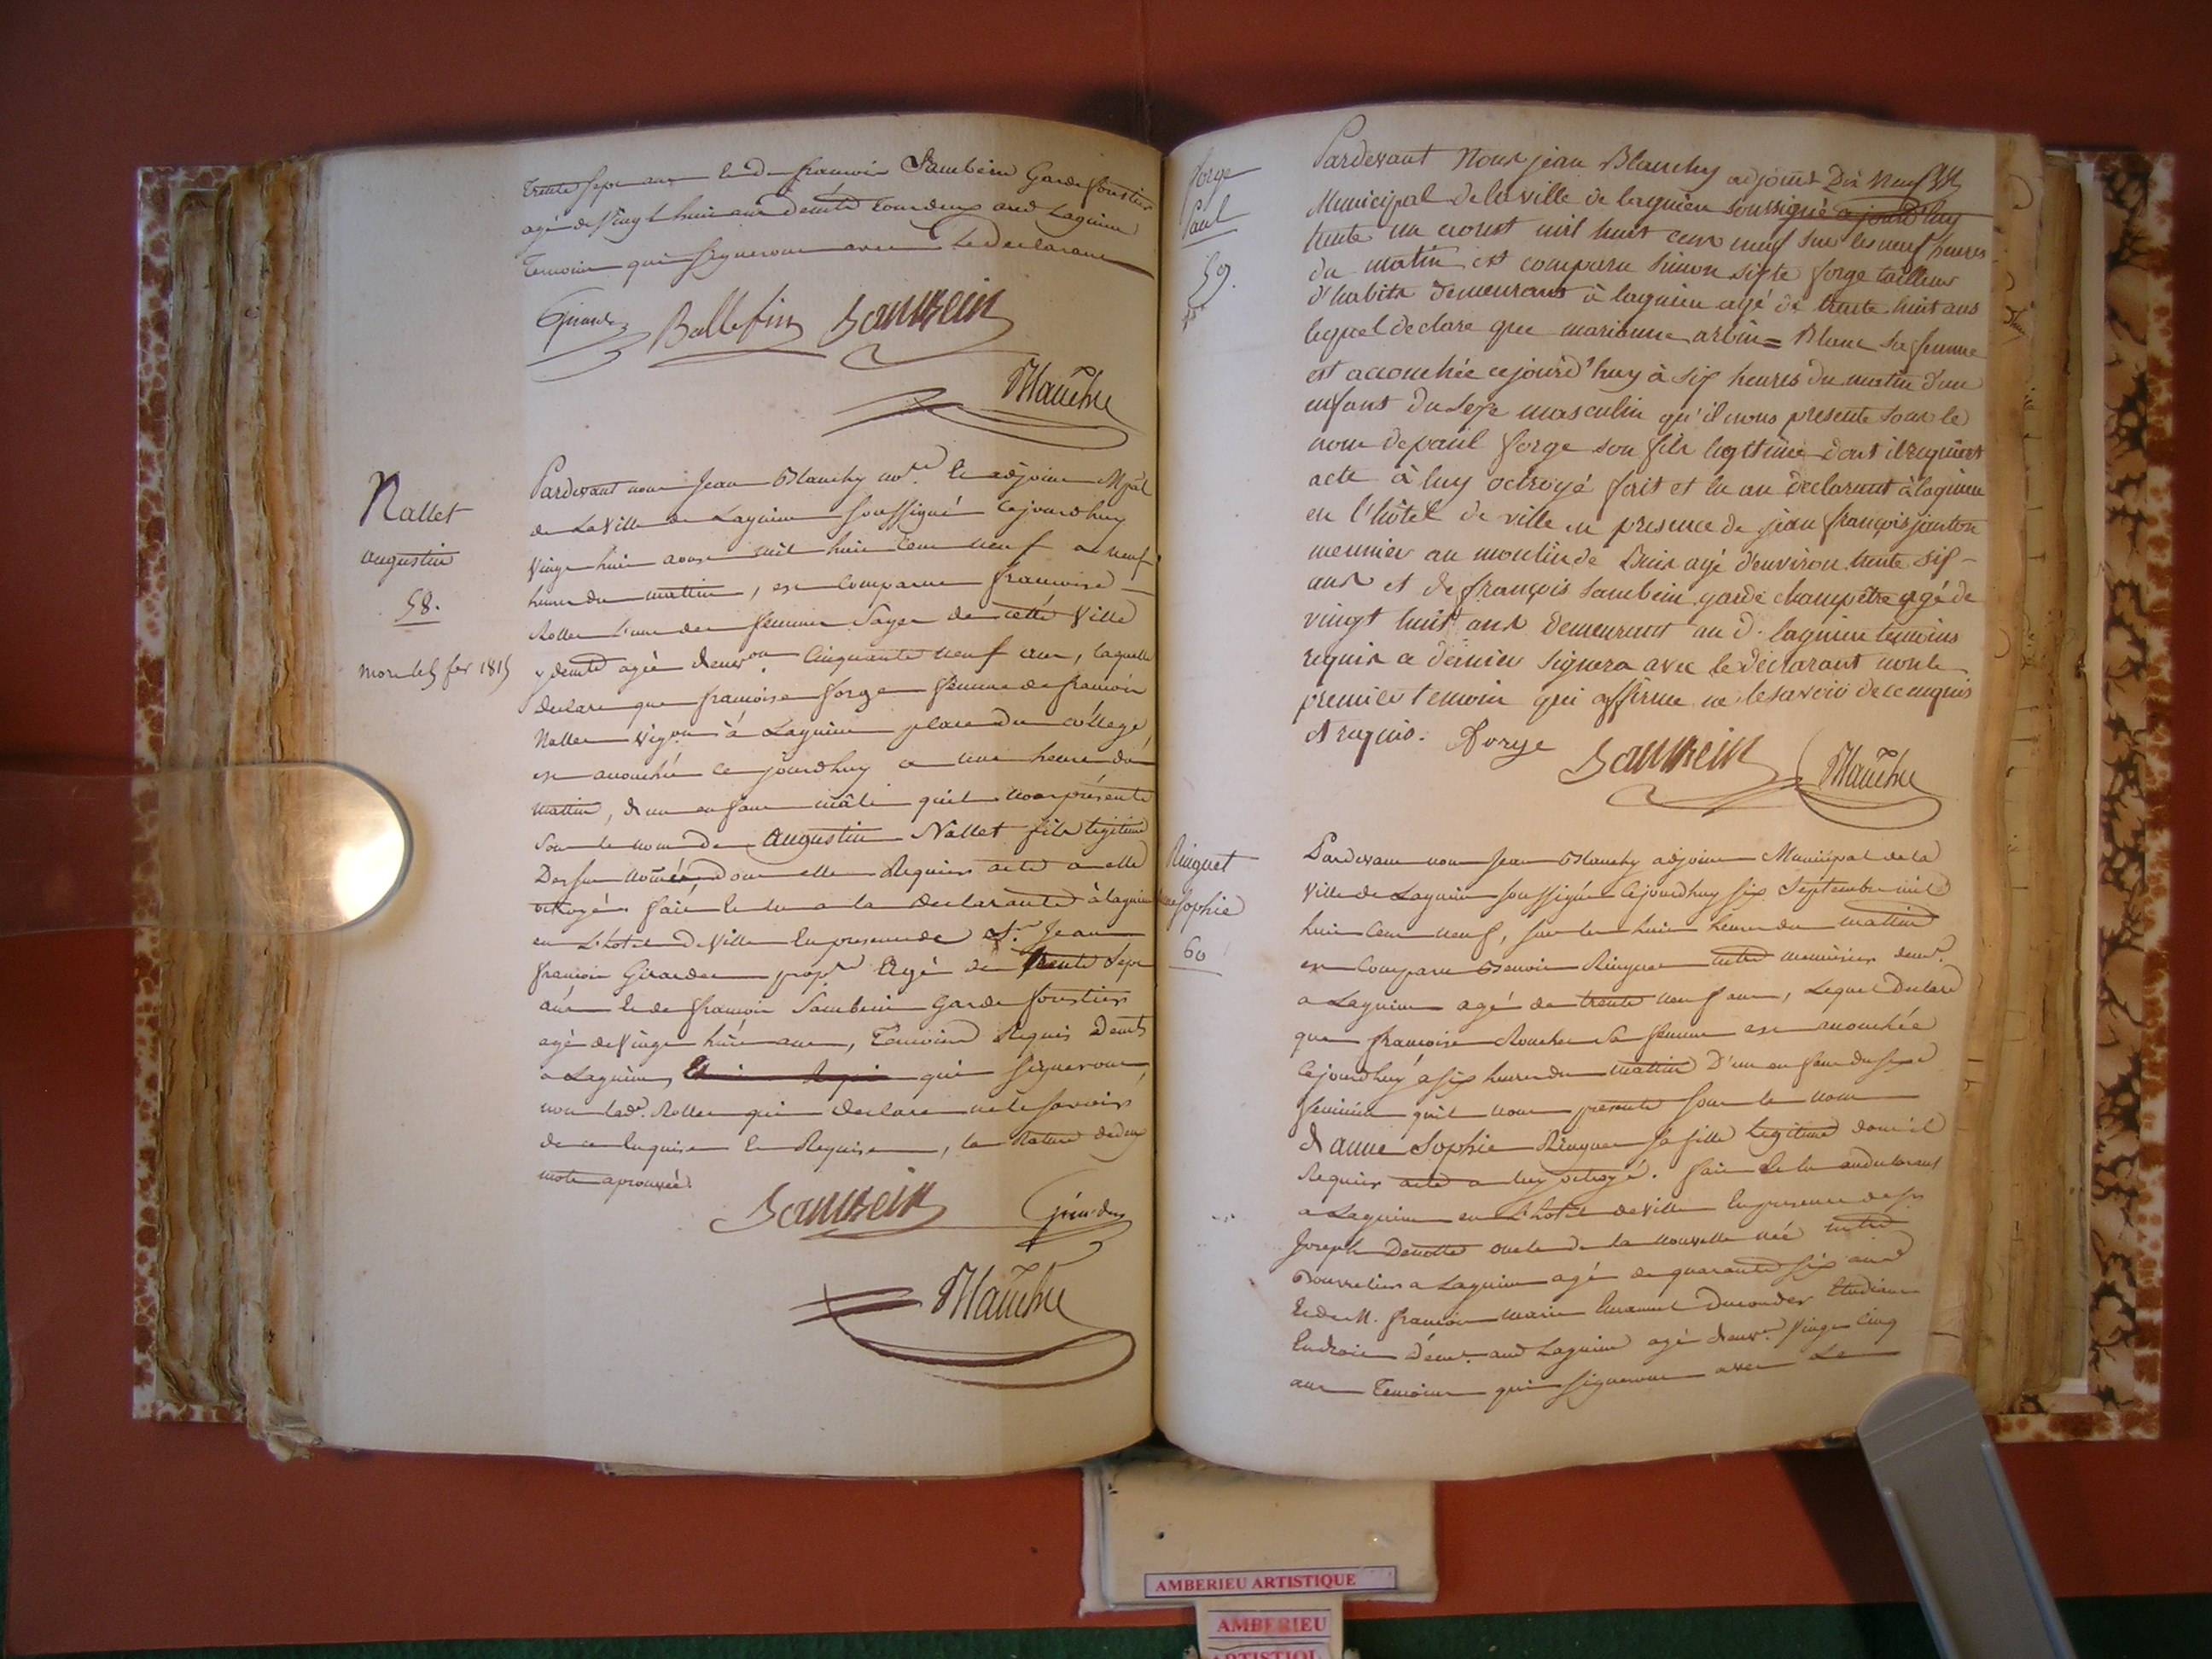 trente sept ans et de francois Sambein Garde forestier
agé de vingt huit ans demts tous deux aud Lagnieu
Temoins qui signeront avec le declarant
Girardet Ballefin Sambein
Blanchy
Nallet
augustin
58.
mort le 5 fev 1815
Pardevant nous Jean Blanchy no.re et adjoint Mpal
de La Ville de Lagnieu soussigné Cejourdhuy
vingt huit aoust mil huit Cent neuf a neuf
heures du mattin, est Comparue francoise
Rollet l'une des femmes Sages de cette Ville
y demte agée denv.on Cinquante neuf ans, laquelle
declare que francoise forge femme de francois
Nallet vign.on à Lagnieu place du collége
est accouchée ce jourdhuy a une heure du
mattin, d'un enfant mâle quil nous présente
Sous le nom de Augustin Nallet fils legitime
Des sus només dont elle Requiert acte a elle
octroyé. fait et lu a la declarante à lagnieu
en L'hotel de Ville en presence de Sr. Jean
francois Girardet prop.re Agé de trente sept
ans et de francois Sambein Garde forestier
agé de vingt huit ans, Temoins Requis Demts
a Lagnieu, qui signeront,
non lade. Rollet qui declare ne le savoir
de ce Enquise et Requise, la Rature de deux
mots aprouvée.
Sambein Girardet
Blanchy
forge
Paul
59.
Pardevant Nous jean Blanchy adjoint
Municipal de la ville de lagnieu soussigné a jourd'huy
trente un aoust mil huit cent neuf sur les neuf heures
du matin est comparu Simon sixte forge tailleur
d'habits demeurant à lagnieu agé de trente huit ans
lequel declare que marianne arbin = Blanc sa femme
est accouchée cejourd'huy à six heures du matin d'un
enfant du sexe masculin qu'il nous presente sous le
nom de paul forge son fils legitime dont il requiert
acte à luy octroyé fait et lu au declarant à lagnieu
en l'hôtel de ville en presence de jean françois janton
meunier au moulin de Buis agé d'environ trente six
ans et de françois Sambein garde champêtre agé de
vingt huit ans demeurant au d. lagnieu temoins
requis ce dernier signera avec le declarant non le
premier temoin qui affirme ne le savoir de ce enquis
et requis. Forge Sambein Blanchy
Ringuet
Sophie
60
Pardevant nous Jean Blanchy adjoint Municipal de la
Ville de Lagnieu soussigné Cejourdhuy six Septembre mil
huit Cent neuf, sur les huit heures du mattin
est Comparu Benoit Ringuet menuisier demt.
a Lagnieu agé de trente neuf ans, Lequel Declare
que francoise Rouchet Sa femme est accouchée
Cejourdhuy a six heures du mattin D'un enfant du sexe
feminin quil nous presente sous le nom
d'anne Sophie Ringuet sa fille legitime dont il
Requiert acte a luy octroyé. fait et lu au declarant
a Lagnieu en L'hotel de Ville en presence de Sr.
Joseph Denolle oncle de la nouvelle née
Bourrelier a Lagnieu agé de quarante six ans
et de M. francois marie Ducondes Etudiant
En droit demt. aud Lagnieu agé denv.on vingt Cinq
ans Temoins qui signeront avec Le
AMBERIEU ARTISTIQUE
AMBERIEU
ARTISTIQU